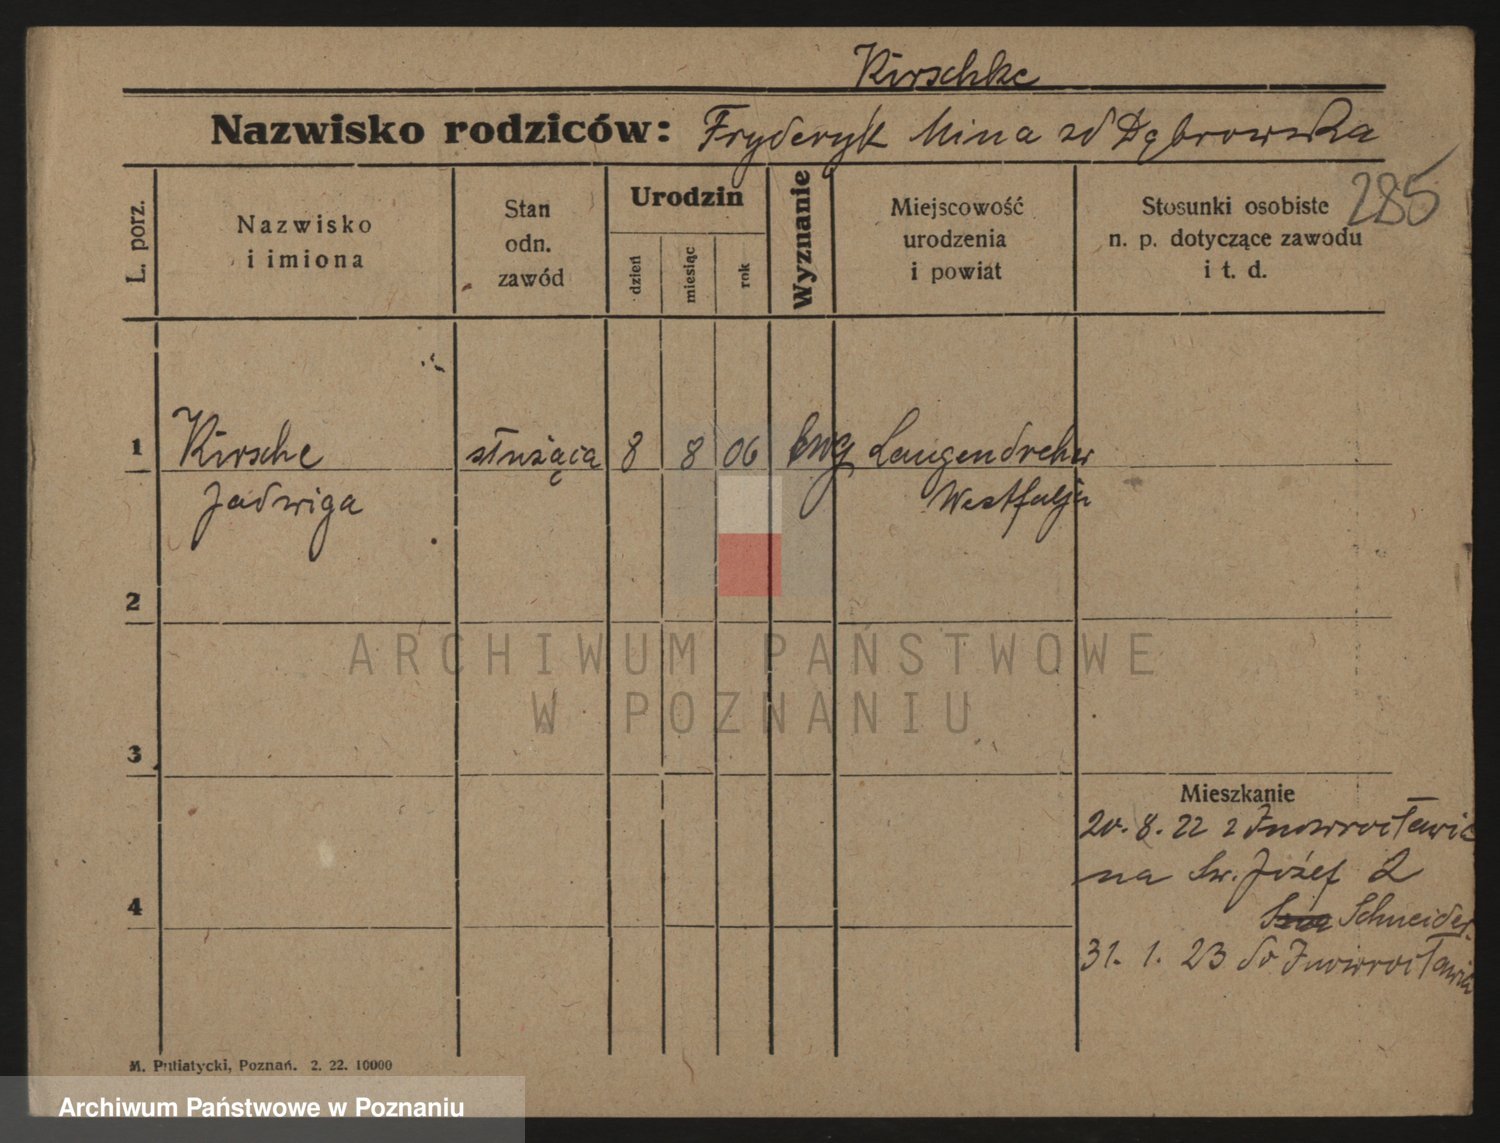 Kirschke
Nazwisko rodziców: Fryderyk Mina zd Dąbrowska
285
L. porz.
Nazwisko
i imiona
Stan
odn.
zawód
Urodzin
dzień
miesiąc
rok
Wyznanie
Miejscowość
urodzenia
i powiat
Stosunki osobiste
n. p. dotyczące zawodu
i t. d.
1 Kirsche służąca 8 8 06 ewg Langendreher
Jadwiga Westfalja
2
3
Mieszkanie
20. 8. 22 z Inowrocławia
na Św. Józef 2
4
Schneider
31. 1. 23 do Inowrocławia
M. Putiatycki, Poznań. 2. 22. 10000
ARCHIWUM PAŃSTWOWE
W POZNANIU
Archiwum Państwowe w Poznaniu